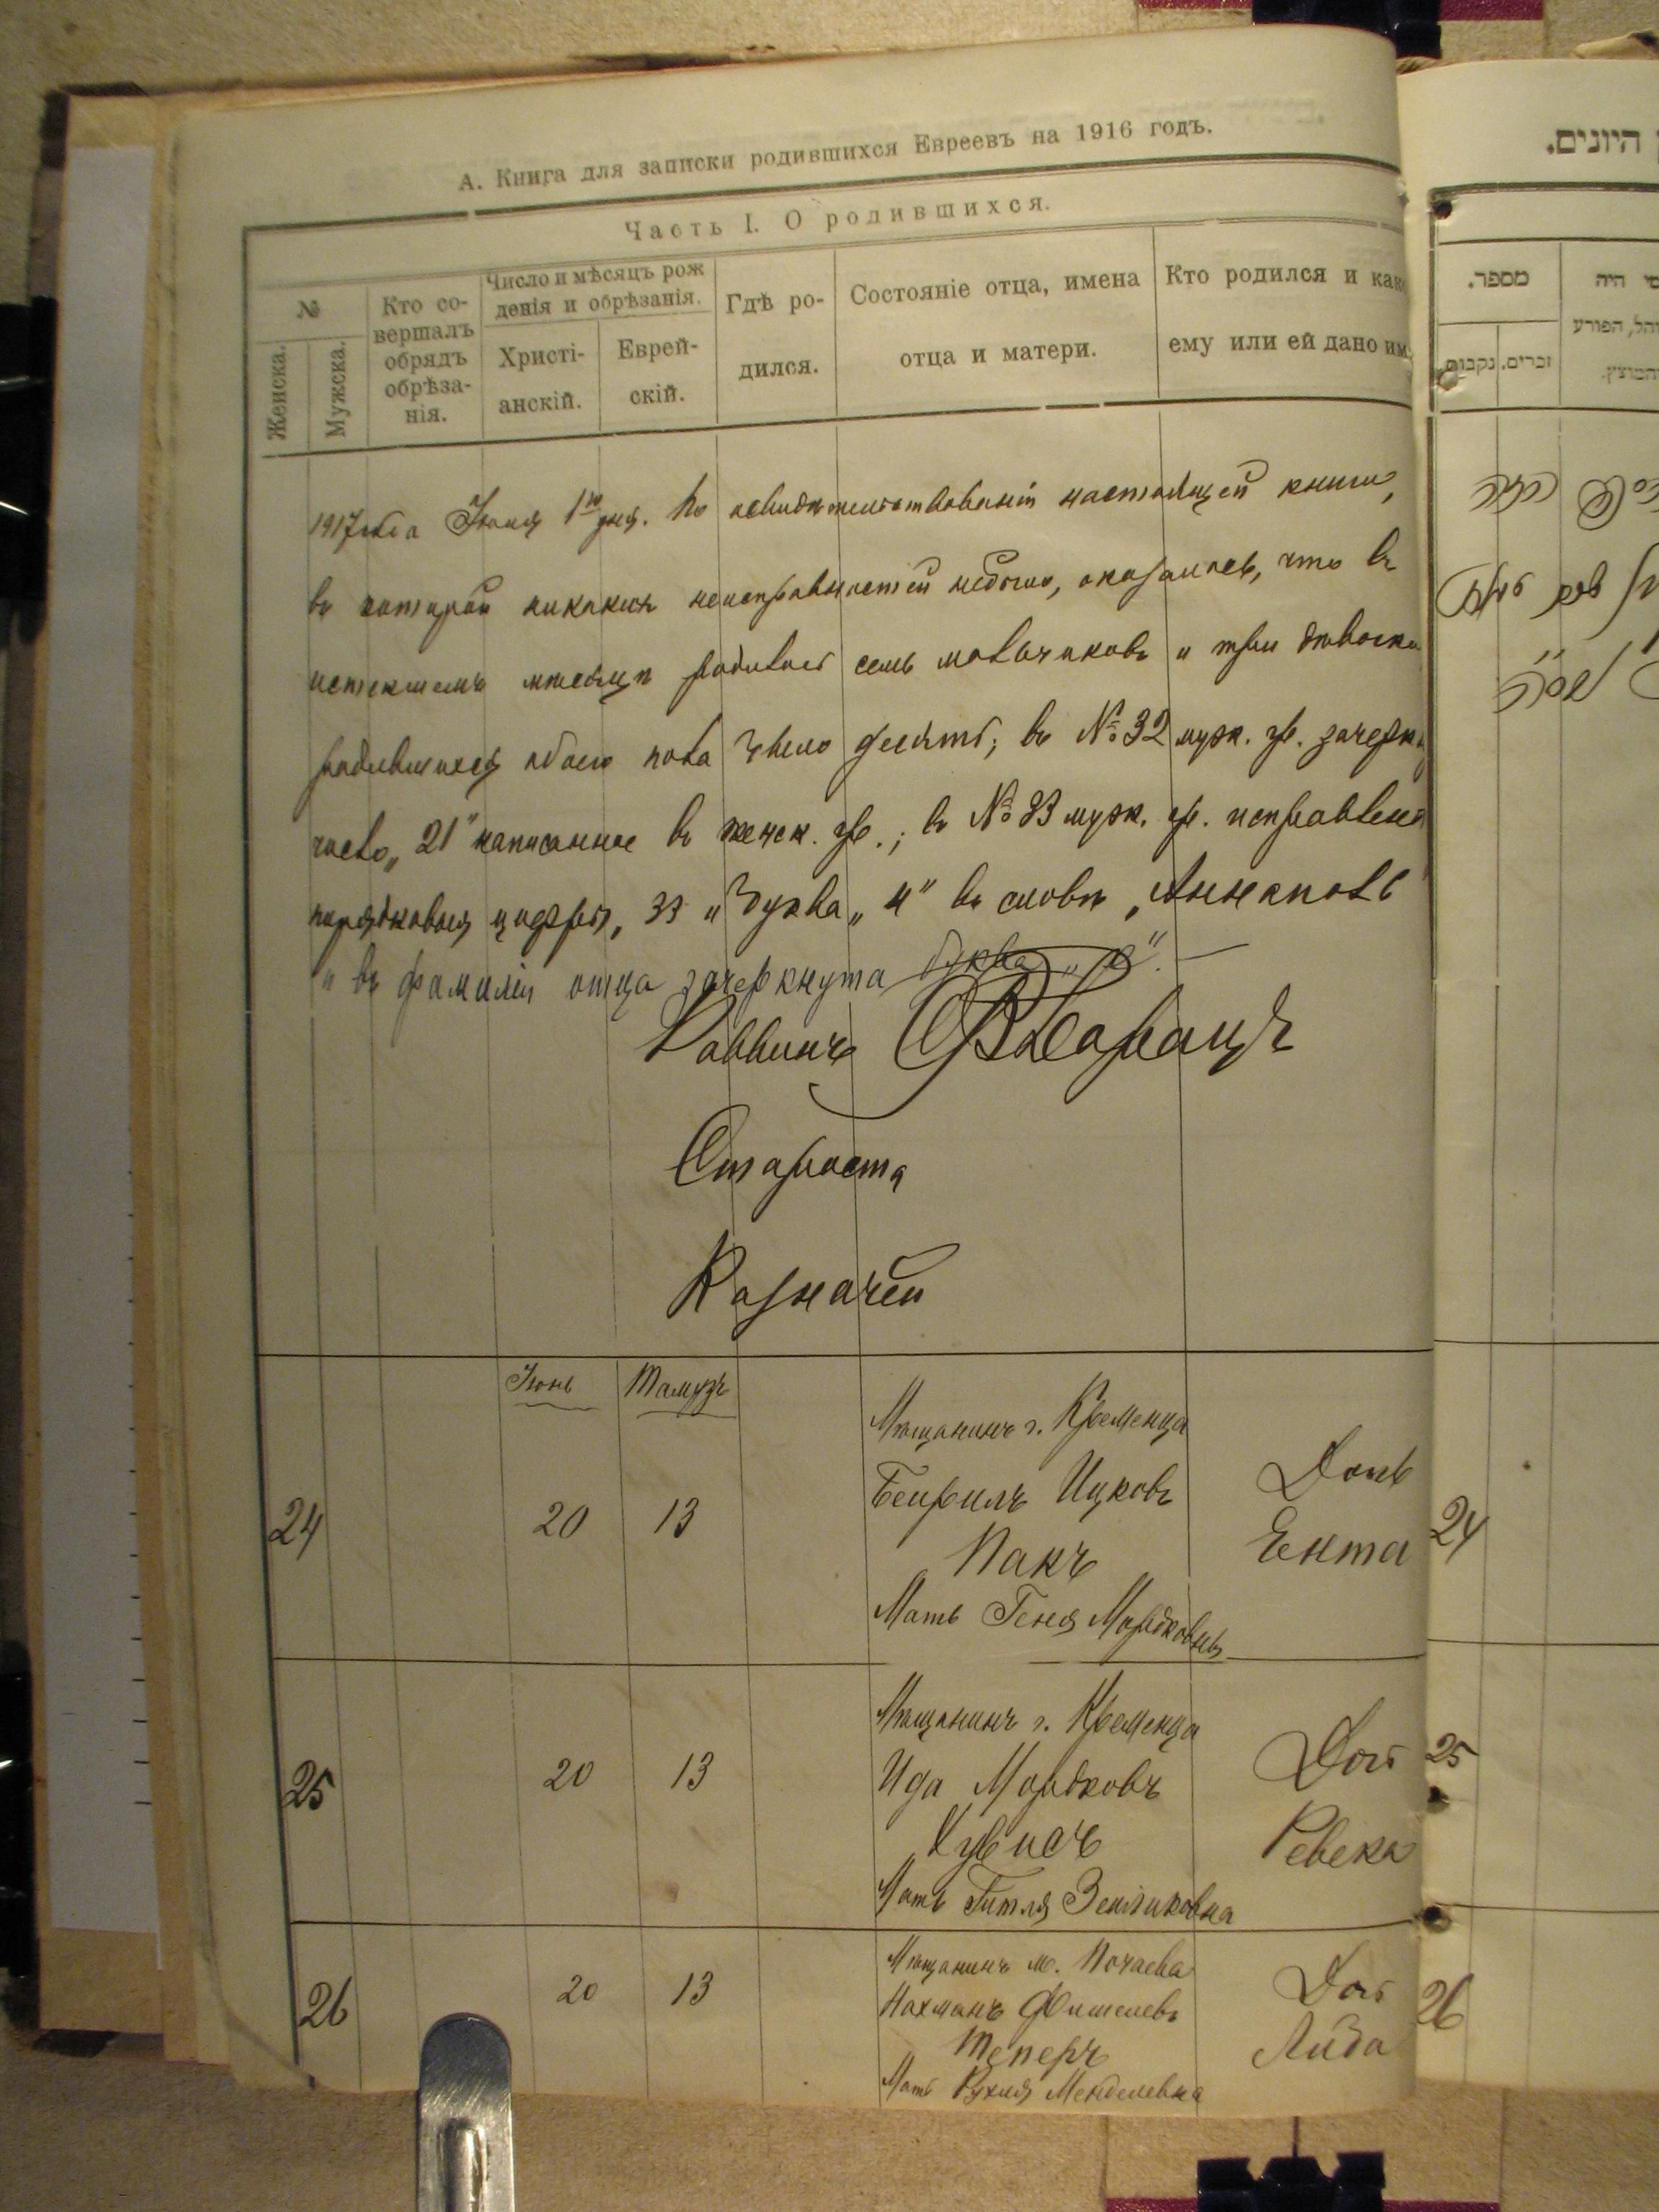 А. Книга для записки родившихся Евреевъ на 1916 годъ.
Часть I. О родившихся.
№
Женска.
Мужска.
Кто со-
вершалъ
обрядъ
обрѣза-
нія.
Число и мѣсяцъ рож
денія и обрѣзанія.
Христі-
анскій.
Еврей-
скій.
Гдѣ ро-
дился.
Состояніе отца, имена
отца и матери.
Кто родился и как
ему или ей дано им
1917 года Іюня 1го дня. По освидѣтельствованіи настоящей книги,
въ которой никакихъ неисправностей небыло, оказалось, что въ
истекшемъ мѣсяцѣ родилось семь мальчиковъ и три дѣвочки
родившихся обоего пола число десять; въ № 32 муж. гр. зачеркн
число „21" написанное въ женск. гр.; въ № 33 муж. гр. исправлена
порядковыя цифры „33 и буква „и" въ словѣ
и въ фамиліи отца зачеркнута буква
Раввинъ
Староста
Казначей
Іюнь Тамузъ
24 20 13
Мѣщанинъ г. Кременца
Бейрилъ Ицковъ
Пакъ
Мать Геня Мордковна
Дочь
Ента
24
25 20 13
Мѣщанинъ г. Кременца
Ида Мордковъ
Мать Гитля Зейликовна
Дочь
Ревека
25
26 20 13
Мѣщанинъ м. Почаева
Нахманъ Фишелевъ
Теперъ
Мать Рухля Менделевна
Дочь
Либа
26
היונים.
מספר.
זכרים. נקבות
מי היה